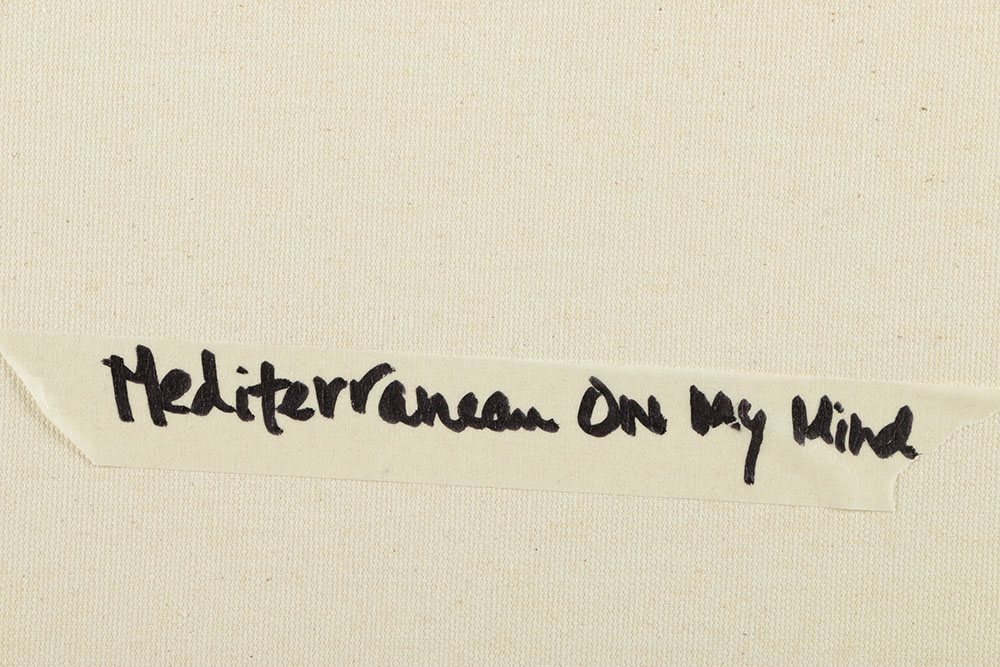 Mediterranean On My Mind